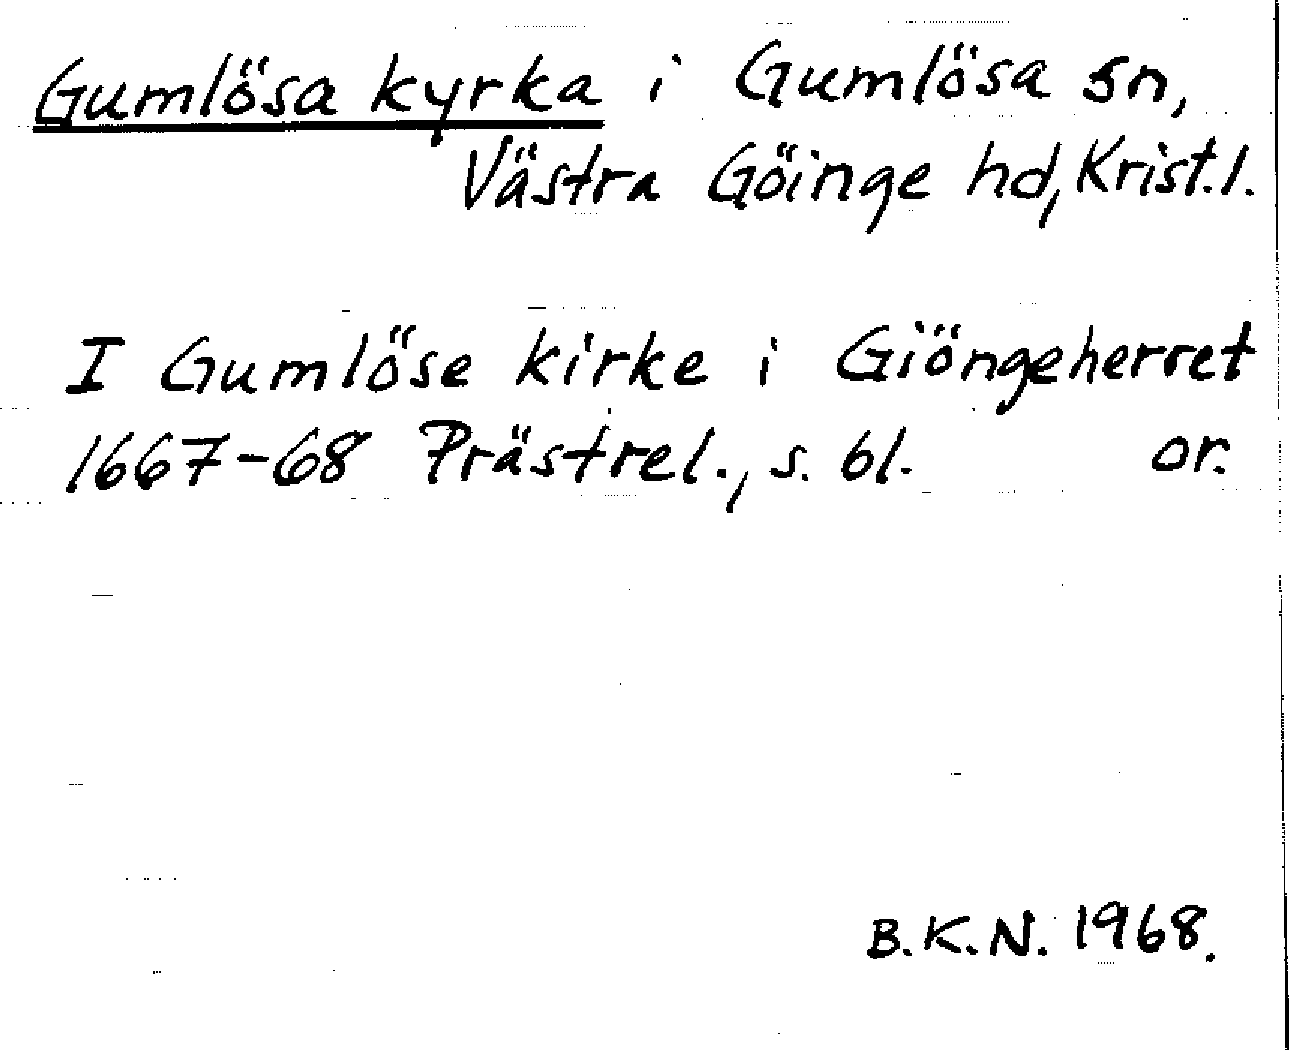 Gumlösa kyrka i Gumlösa sn,
Västra Göinge hd, Krist. l.
I Gumlöse kirke i Giöngeherret
1667-68 Prästrel., s. bl. or.
B.K.N. 1968.